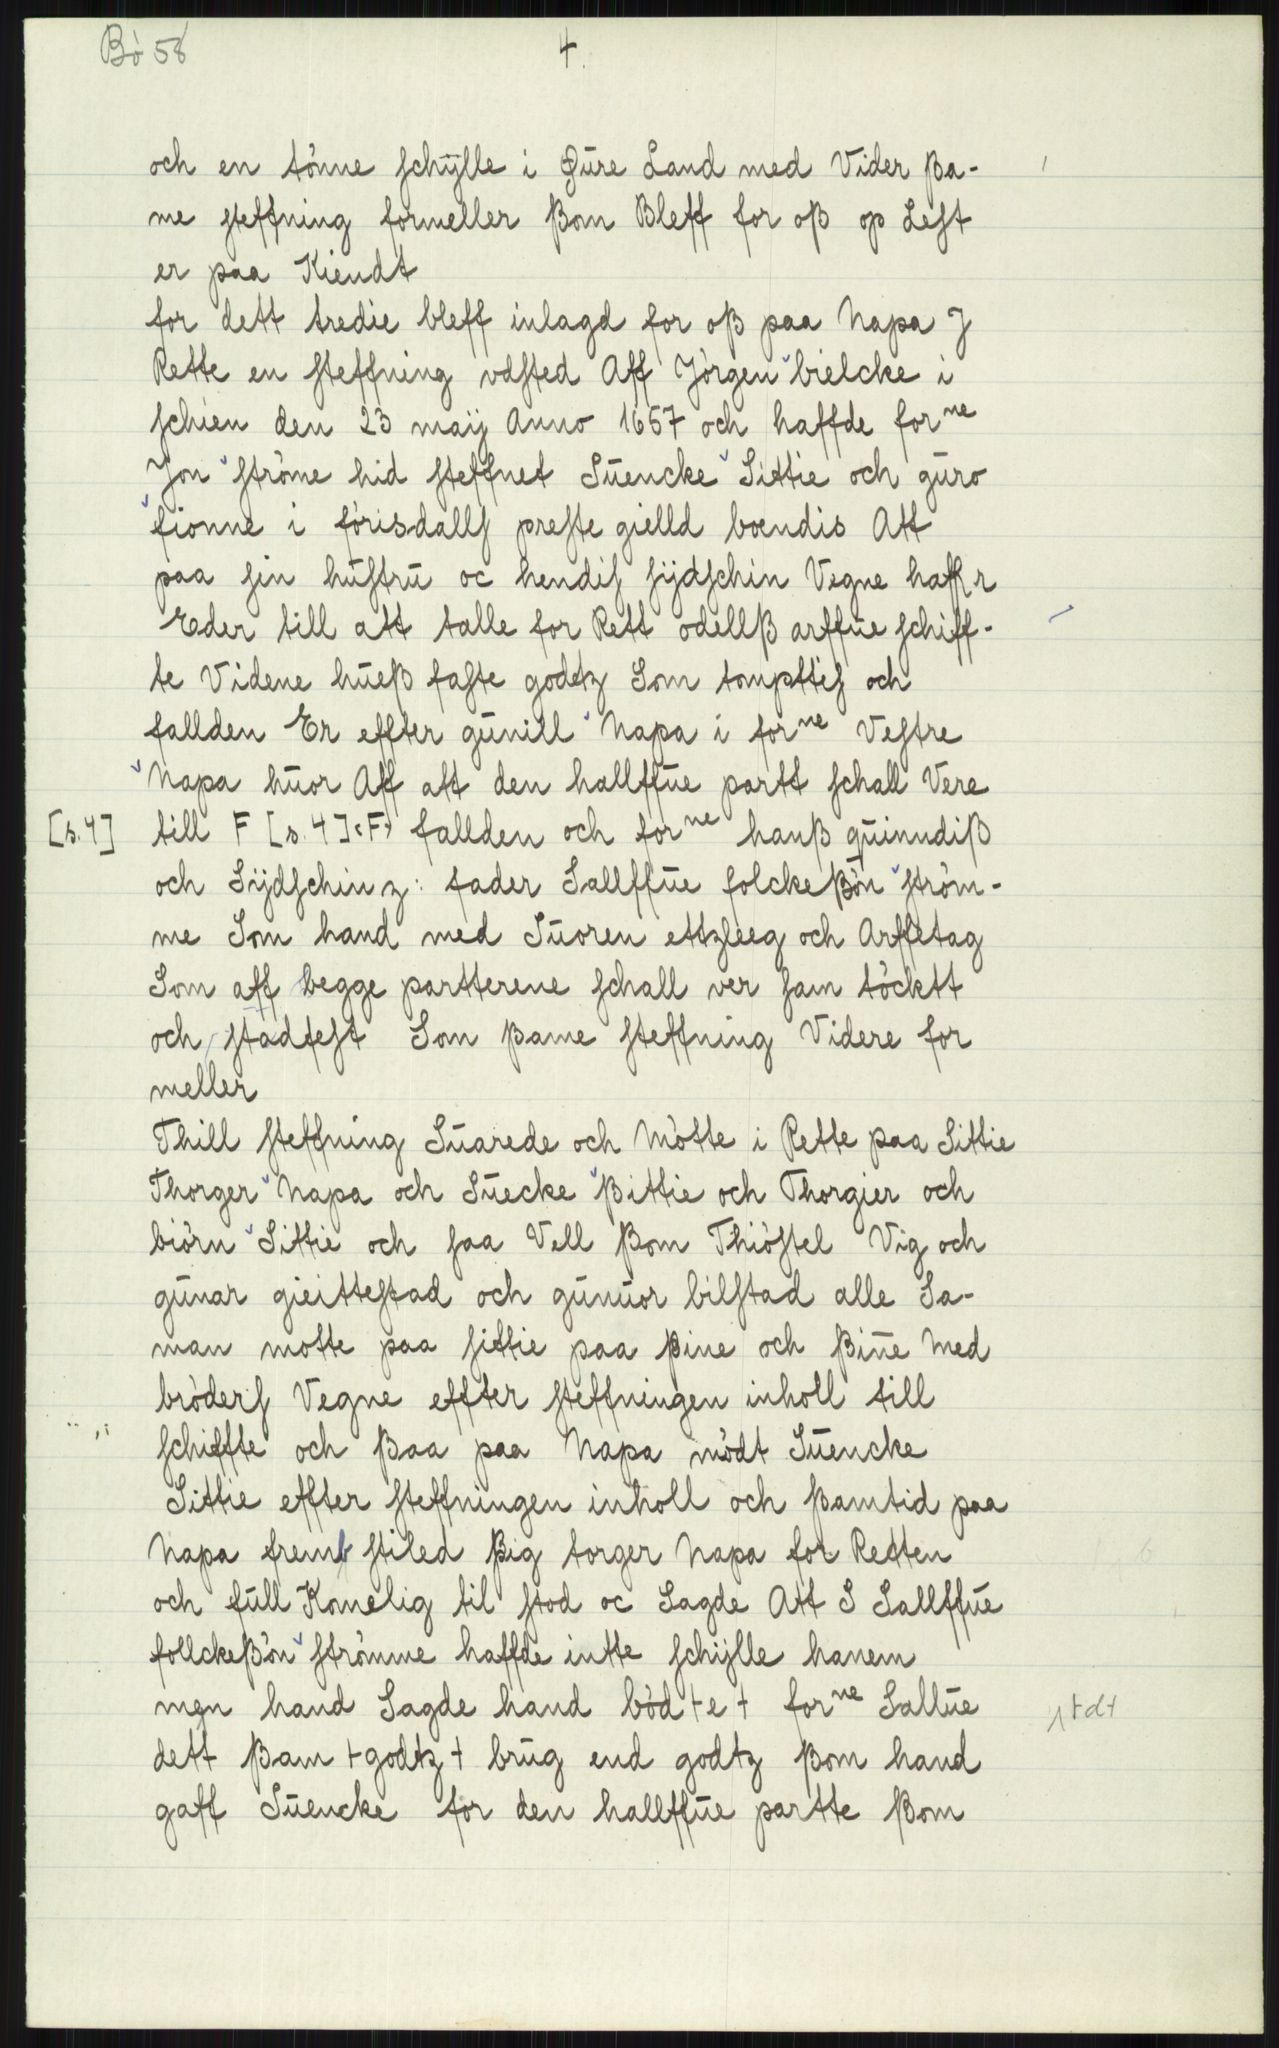 Bö 58
4.
och en tönne schÿlle i Øure Land med Vider ßa-
me steffning formeller ßom Bleff for oß op Lest
er paa Kiendt
for dett tredie bleff inlagd for oß paa Napa J
Rette en steffning vdsted Aff Jörgen bielcke i
schien den 23 maÿ Anno 1657 och haffde forne
Jon ströme hid steffnet Suencke Sittie och guro
fionne i förisdalls preste gielld boendis Att
paa sin hustru oc hendis sÿdschin Vegne haffr
Eder till att talle for Rett odellß arffue schiff-
te Videne hueß faste godtz Som tompttis och
fallden Er effter gunill Napa i forne Vestre
Napa huor Aff att den hallffue partt schall Vere
[s.4] till F [s. 4] <F> fallden och forne hanß quinndiß
och Sÿdschinz: fader Sallffue folckeßön ström-
me Som hand med Suoren ettzleeg och Arffetag
Som aff begge partterene schall ver sam töcktt
och stadfest Som ßame steffning Videre for
meller
Thill steffning Suarede och Mötte i Rette paa Sittie
Thorger Napa och Suecke ßittie och Thorgier och
biörn Sittie och saa Vell ßom Thiöstel Vig och
gunar gieittestad och gunuor bilstad alle Sa-
man motte paa sittie paa ßine och ßine Med
bröders Vegne effter steffningen inholl till
schiffte och ßaa paa Napa mödt Suencke
Sittie effter steffningen inholl och ßamtid paa
Napa fremb stiled ßig torger Napa for Retten
och full Komelig til stod oc Sagde Att S Sallffue
follckeßön strömme haffde intte schÿlle hanem
men hand Sagde hand böd +e+ forne Sallue
+d+
dett ßam +godtz+ brug end godtz ßom hand
gaff Suencke for den hallffue partte ßom